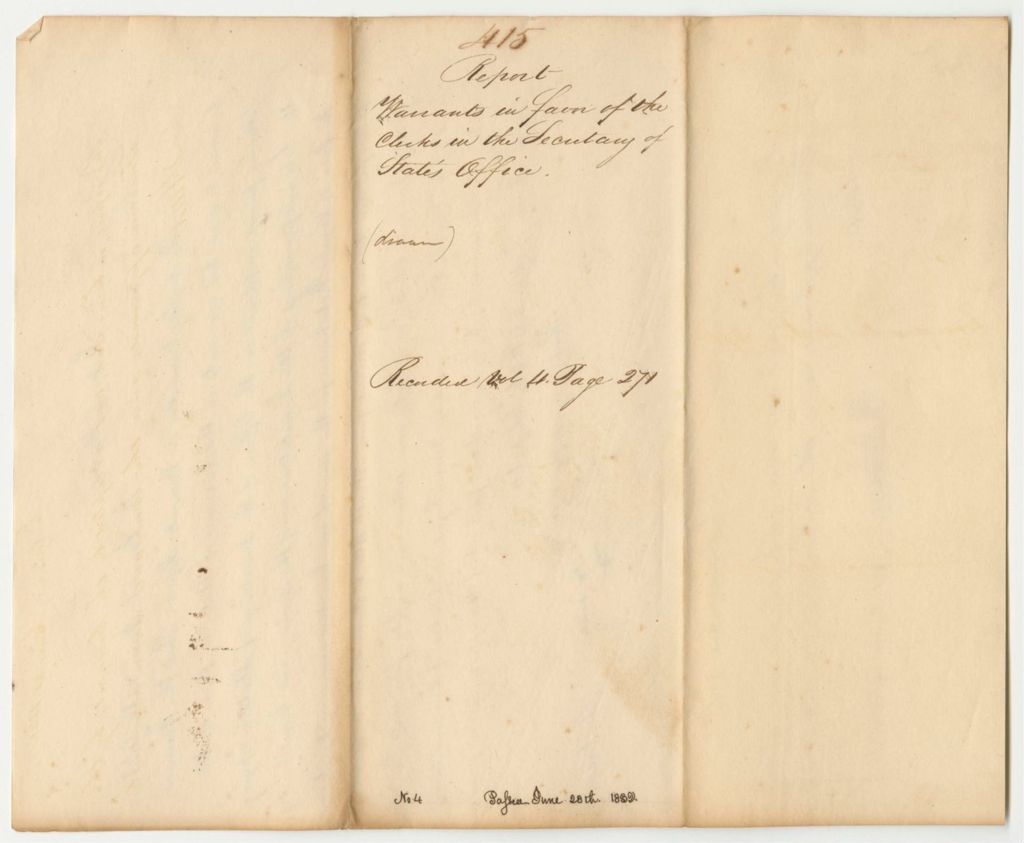 415
Report
Warrants in favor of the
Clerks in the Secretary of
State's Office.
(drawn)
Recorded Vol 4. Page 271
No 4 Passed June 28th. 183